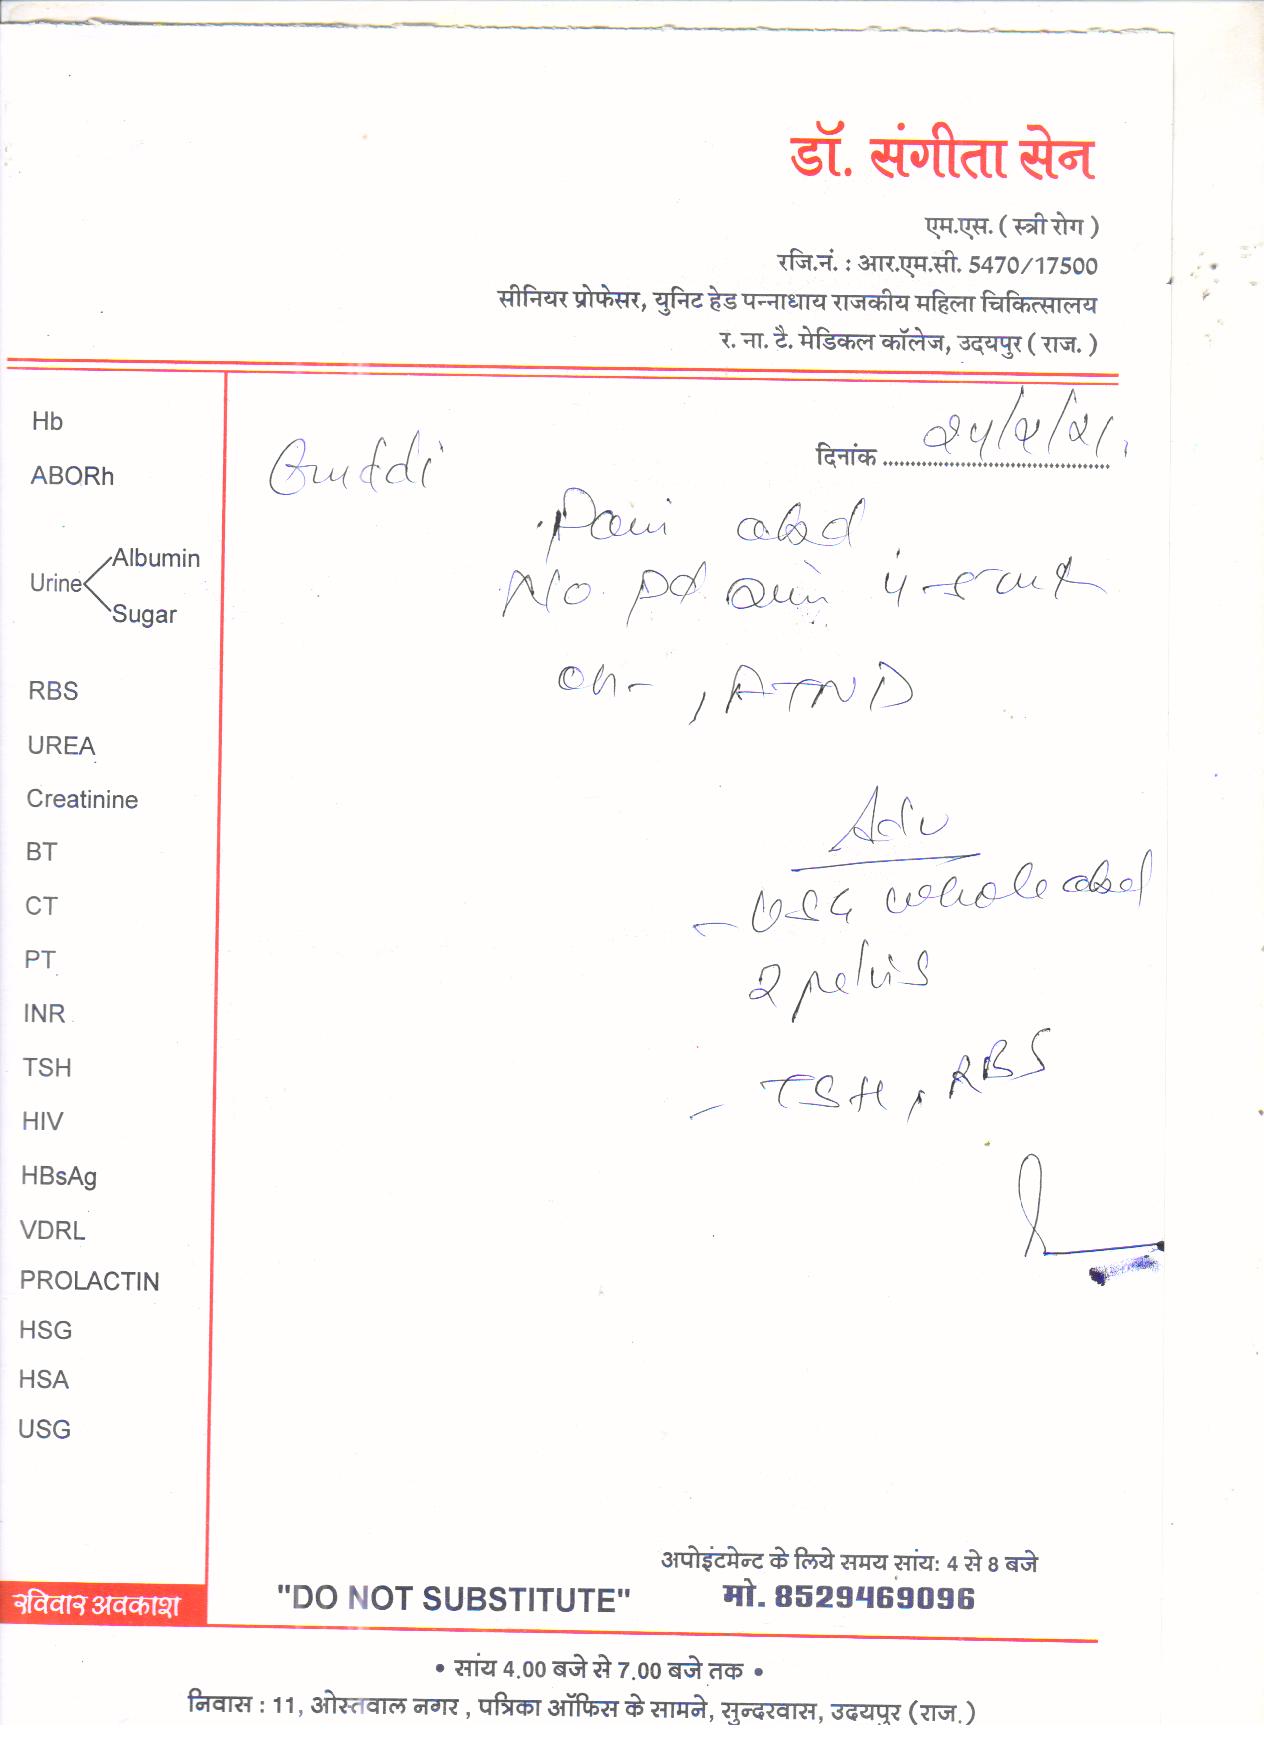 डॉ. संगीता सेन
एम.एस. ( स्त्री रोग )
रजि.नं. : आर.एम.सी. 5470/17500
सीनियर प्रोफेसर, युनिट हेड पन्नाधाय राजकीय महिला चिकित्सालय
र. ना. टै. मेडिकल कॉलेज, उदयपुर ( राज. )
दिनांक
Guddi
Pain abd
No
Adv
- USG whole abd
pelvis
- TSH, RBS
Hb
ABORh
Urine
Albumin
Sugar
RBS
UREA
Creatinine
BT
CT
PT
INR
TSH
HIV
HBsAg
VDRL
PROLACTIN
HSG
HSA
USG
रविवार अवकाश
"DO NOT SUBSTITUTE"
अपोइंटमेन्ट के लिये समय सांय: 4 से 8 बजे
मो. 8529469096
• सांय 4.00 बजे से 7.00 बजे तक •
निवास : 11, ओस्तवाल नगर , पत्रिका ऑफिस के सामने, सुन्दरवास, उदयपुर (राज.)